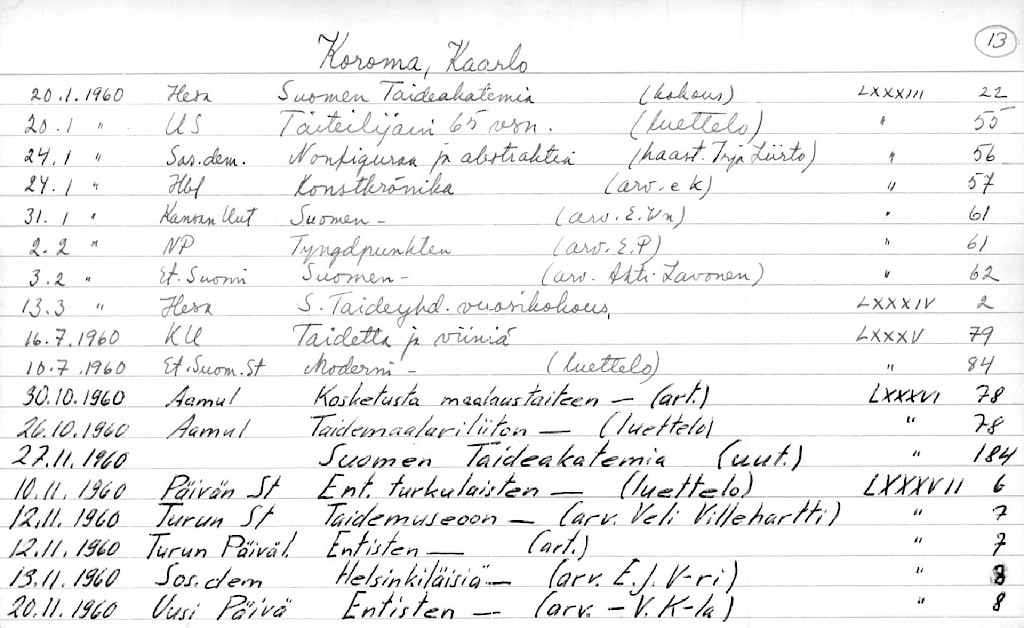 13
Koroma, Kaarlo
20.1.1960 Hesa Suomen Taideakatemia (kokous) LXXXIII 22
20.1 " US Taiteilijain 65 vsn. (luettelo) " 55
24.1 " Sos.dem. Nonfiguraa ja abstraktia (haast. Irja Liirto) " 56
24.1 " Hbl Konstkrönika (arv. e k) " 57
31.1 " Kansan Uut Suomen - (arv. E.Vn) " 61
2.2 " NP Tyngdpunkten (arv. E.P) " 61
3.2 " Et.Suomi Suomen - (arv. Ahti Lavonen) " 62
13.3 " Hesa S. Taideyhd. vuosikokous, LXXXIV 2
16.7.1960 KU Taidetta ja viiniä LXXXV 79
10.7.1960 Et.Suom.St Moderni - (luettelo) " 84
30.10.1960 Aamul Kosketusta maalaustaiteen — (art.) LXXXVI 78
26.10.1960 Aamul Taidemaalariliiton — (luettelo) " 78
27.11.1960 Suomen Taideakatemia (uut.) " 184
10.11.1960 Päivän St Ent. turkulaisten — (luettelo) LXXXVII 6
12.11.1960 Turun St Taidemuseoon — (arv. Veli Villehartti) " 7
12.11.1960 Turun Päiväl. Entisten — (art.) " 7
13.11.1960 Sos.dem Helsinkiläisiä — (arv. E.J. V-ri) " 8
20.11.1960 Uusi Päivä Entisten — (arv. - V. K-la) " 8